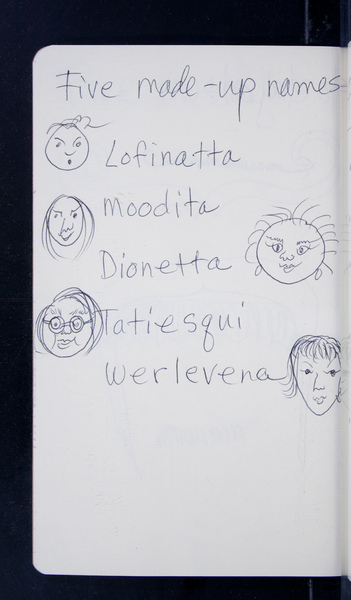 Five made-up names-
Lofinatta
Moodita
Dionetta
Tatiesqui
Werlevena